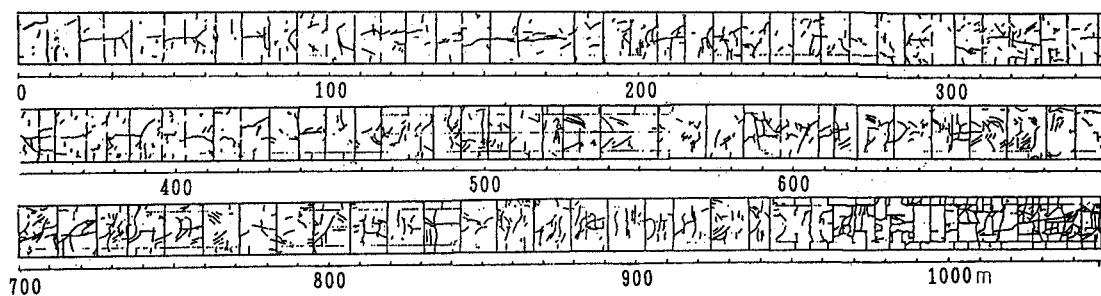 0 100 200 300
400 500 600
700 800 900 1000m